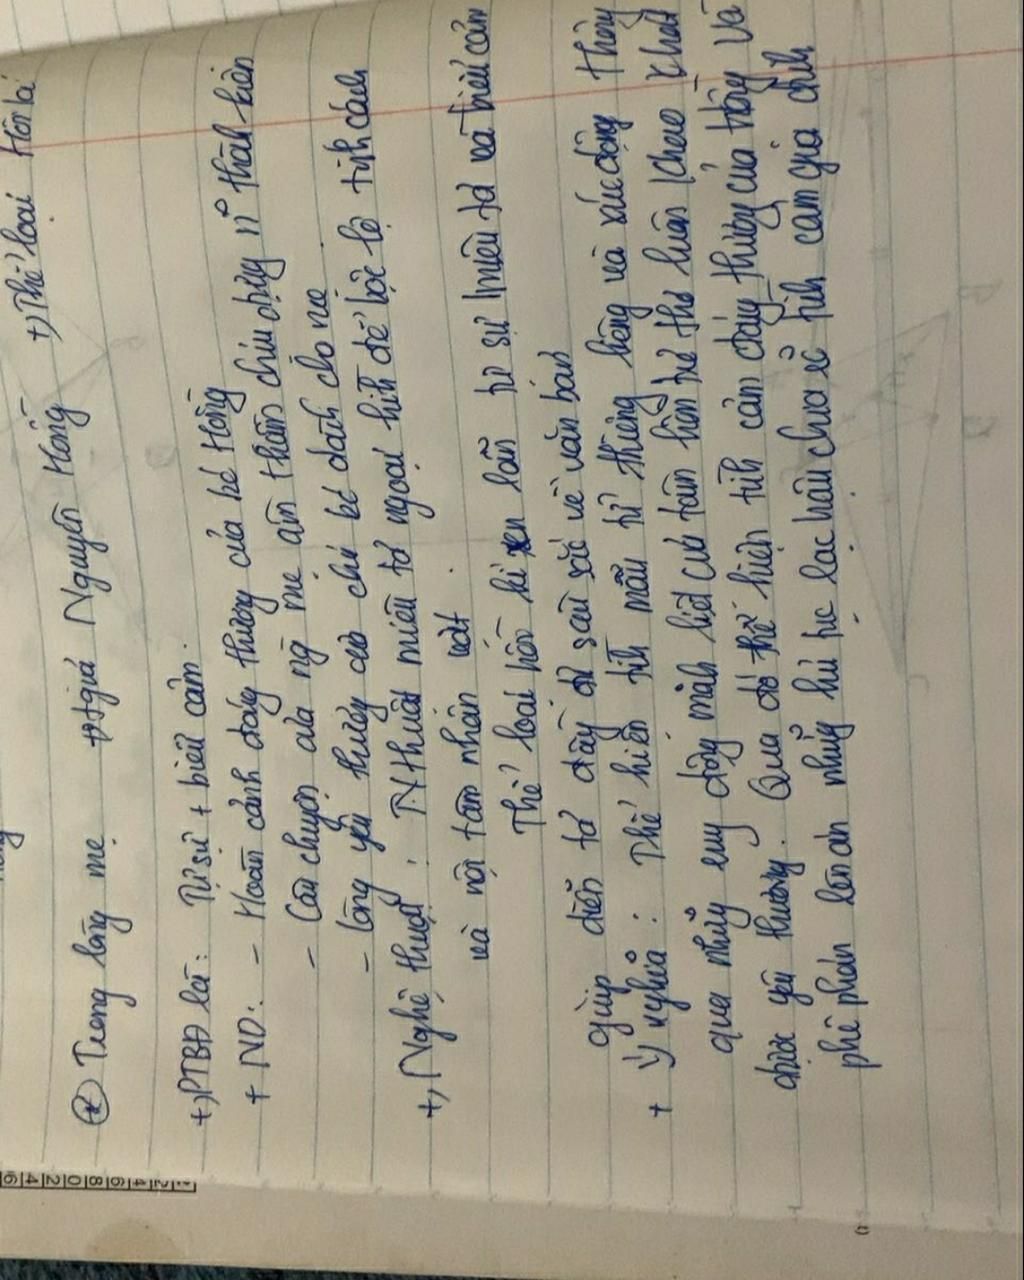 * Trong lòng mẹ +) tgiả Nguyên Hồng +) Thể loại Hồi kí
+) PTBĐ là: Tự sự + biểu cảm.
+ ND: - Hoàn cảnh đáng thương của bé Hồng
- Câu chuyện của ng mẹ âm thầm chịu đựng n~ thành kiến
- lòng yêu thương của chú bé dành cho mẹ
+) Nghệ thuật: NThuật miêu tả ngoại hình để bộc lộ tính cách
và nội tâm nhân vật
Thể loại hồi kí xen lẫn tự sự miêu tả và biểu cảm
giúp diễn tả đầy đủ sâu sắc về văn bản
+ ý nghĩa: Thể hiện tình mẫu tử thiêng liêng và xúc động thông
qua những rung động mãnh liệt của tâm hồn trẻ thơ luôn khao khát
được yêu thương. Qua đó thể hiện tình cảm đáng thương của Hồng và
phê phán lên án những hủ tục lạc hậu chưa có tình cảm gia đình